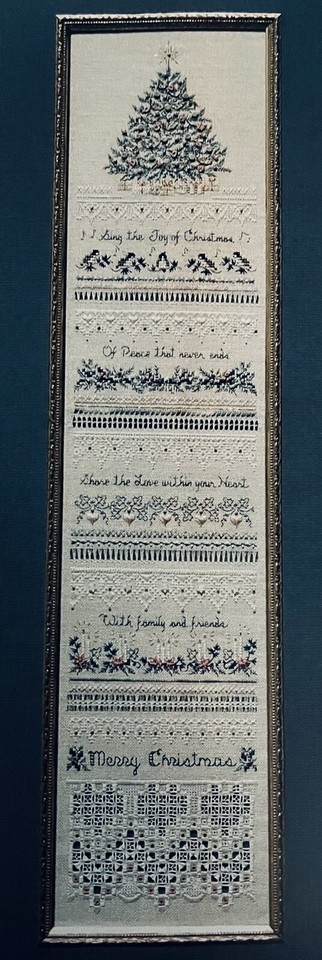 Sing the Joy of Christmas
Of Peace that never ends
Share the Love within your Heart
With family and friends
Merry Christmas